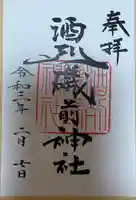 奉拝
酒列磯前神社
令和二年二月七日